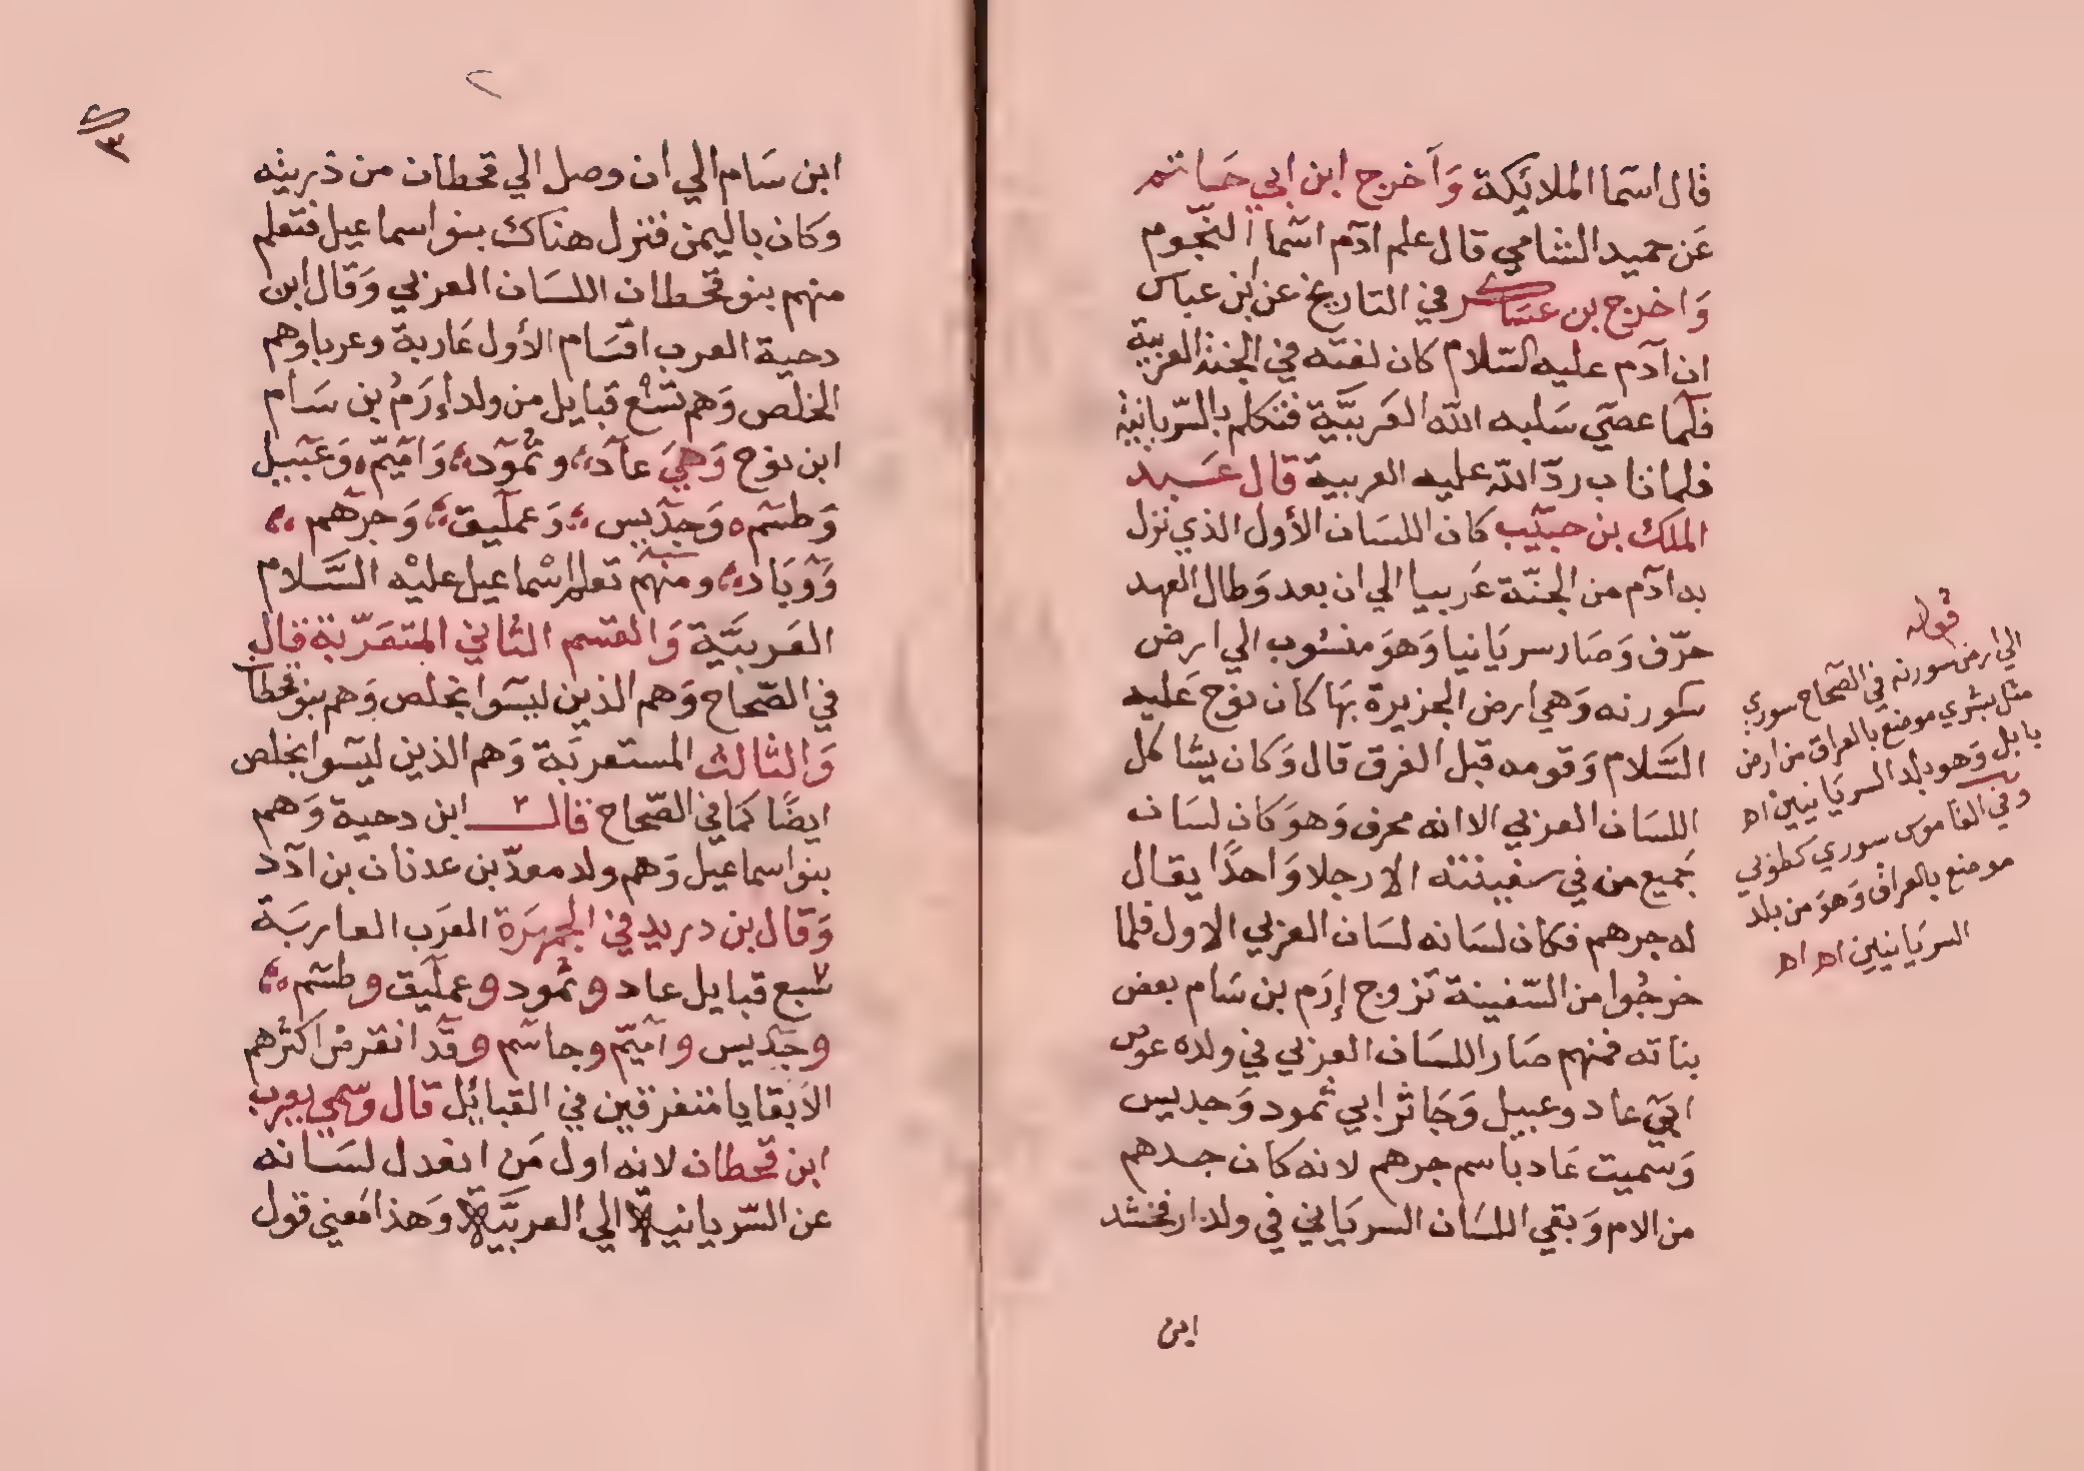 قال اسما الملائكة وَاَخرج ابن ابي حاتم
عَن حميد الشامي قال علم ادٓم اسٓما النجّوم
وَاخرج بن عساكر في التاريخ عن ابن عباس
ان آدم عليه السّلام كان لغته في الجنة العربية
فلَّما عصَي سَلبه اللّه العَربيَّة فتكلم بالسّريانية
فلما تاب ردّ اللّه عليه العربية قال عَبد
الملك بن حبيٓب كان اللسَان الأول الذي نزل
به ادٓم من الجنّة عَربيا الي ان بعد وَطال العهد
حرّف وَصَار سريَانيا وَهوَ منسُوب الي ارض
سورنه وَهي ارض الجزيرة بهَا كان نوٓح عَليه
السَّلام وَقومه قبل الغرق قال وَكان يشاكل
اللسَان العربي الا انه محرف وَهوَ كان لسَان
جَميع من في سفينته الا رجلا وَاحدًا يقال
له جرهم فكان لسَانه لسَان العربي الاول فلما
خرجُوا من السّفينة تزوج إرَم بن سَام بعض
بناته فمنهم صَار اللسَان العربي في ولده عوص
ابي عاد وعبيل وَجَاثر ابي ثمود وَجديس
وَسميت عَاد باسم جرهم لانه كان جدهم
من الام وَبقي اللسَان السريَاني في ولد ارفخشد
ابن
قوله
الي ارض سورنه في الصّحاح سوري
مثل بشري موضع بالعراق من ارض
بابل وَهو بلد السريَانيين اه
وفي القاموس سوري كطوبي
موضع بالعراق وَهوَ من بلد
السريَانيين اه اه
٣
ابن سَام الي ان وصل الي قحطان من ذريته
وكان باليمن فنزل هناك بنو اسماعيل فتعلم
منهم بنو قحطان اللسَان العربي وَقال ابن
دحية العرب اقسَام الأول عَاربة وعرباوهم
الخلص وَهم تسْع قبايل من ولد إرَمُ بن سَام
ابن نوح وَهيَ عآد، وثمٓود، وَامٓيم، وَعبٓيل
وَطسٓم، وَجدٓيس، وَعملٓيق، وَجرهٓم،
وَوٓبَاد، ومنهم تعلم إسْماعيل عليْه السَّلام
العَربيَّة وَالقسم الثاني المتعَرّبة قال
في الصّحاح وَهم الذين ليسٓوا بخلص وَهم بنو قحطان
وَالثالث المستعربَة وَهم الذين ليسٓوا بخلص
ايضًا كمَا في الصّحاح قالــ ابن دحية وَهم
بنو اسماعيل وَهم ولد معدّ بن عدنان بن ادٓد
وَقال بن دريد في الجمهرَة العرَب العاربَة
سبع قبايل عاد وثمٓود وعملٓيق وطسٓم،
وجدٓيس وامٓيم وجاسٓم وقٓد انقرض اكثرهم
الاّ بقايا متفرقين في القبائل قال وسٓمي يعرب
ابن قحطان لانه اول مَن انعدل لسَانه
عن السّريانية الي العربيَّة وَهذا مَعني قول